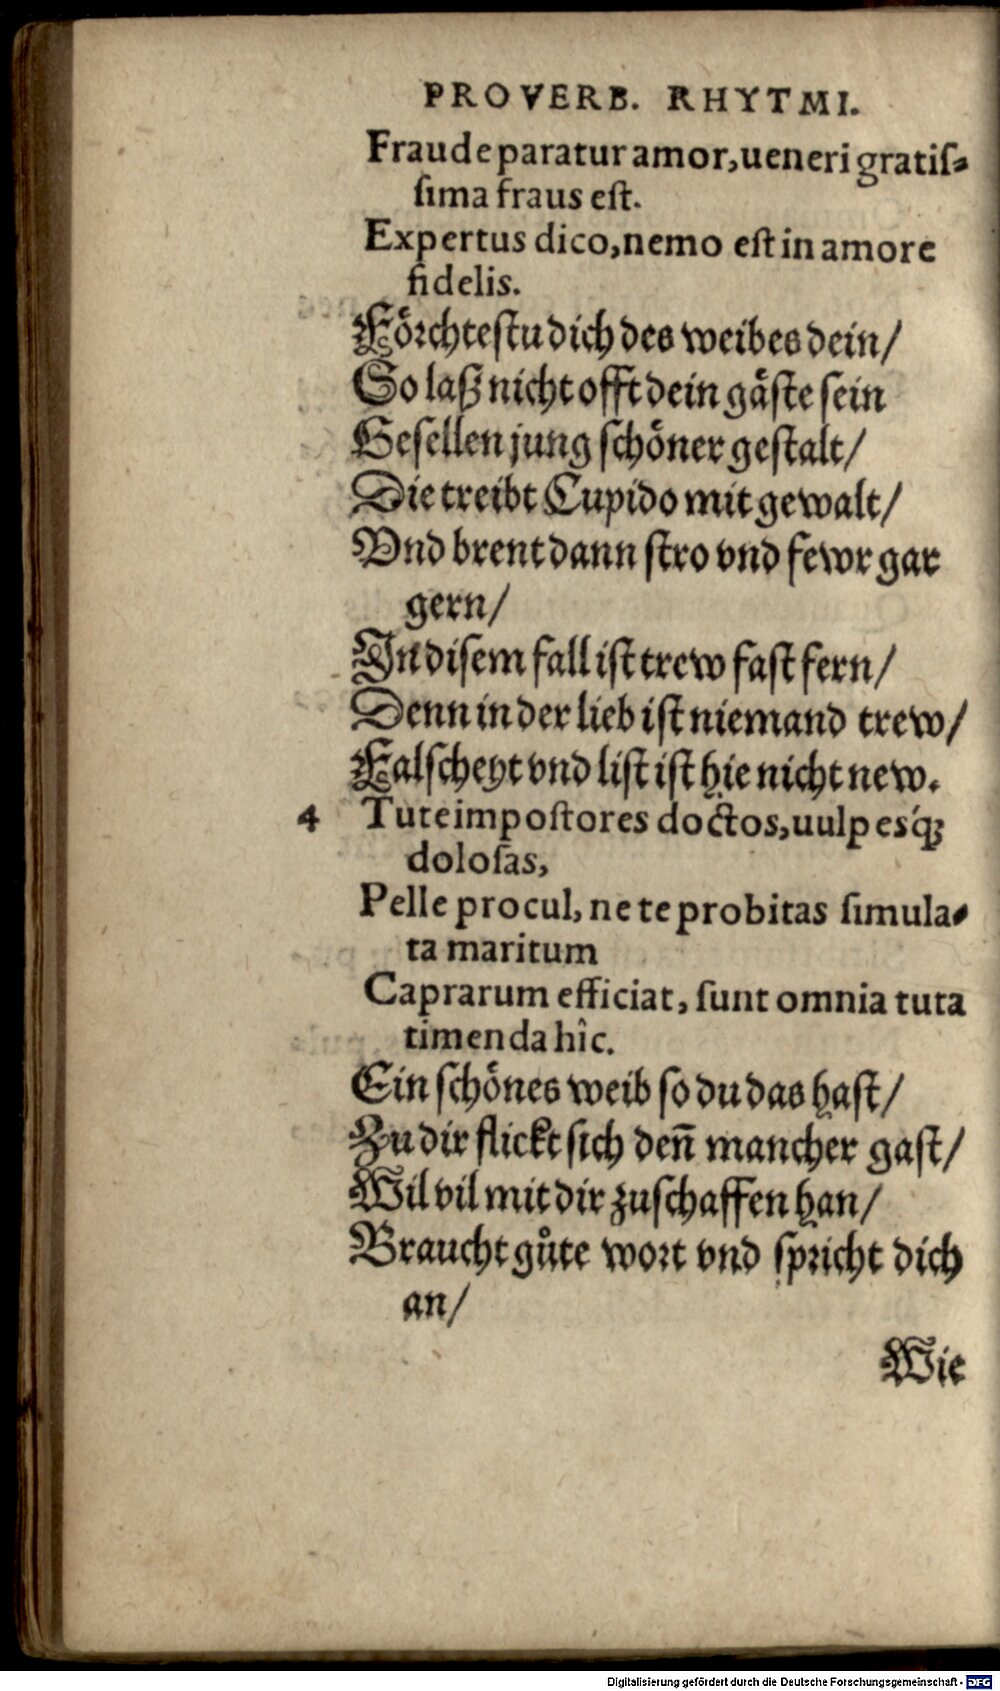 PROVERB. RHYTMI.
Fraude paratur amor, ueneri gratiſ-
ſima fraus eſt.
Expertus dico, nemo eſt in amore
fidelis.
Förchteſtu dich des weibes dein/
So laß nicht offt dein gäſte ſein
Geſellen jung ſchöner geſtalt/
Die treibt Cupido mit gewalt/
Vnd brent dann ſtro vnd fewr gar
gern/
In diſem fall iſt trew faſt fern/
Denn in der lieb iſt niemand trew/
Falſcheyt vnd liſt iſt hie nicht new.
4 Tute impoſtores doctos, uulpesq́ꝫ
doloſas,
Pelle procul, ne te probitas ſimula-
ta maritum
Caprarum efficiat, ſunt omnia tuta
timenda hîc.
Ein ſchönes weib ſo du das haſt/
Zu dir flickt ſich den̄ mancher gaſt/
Wil vil mit dir zuſchaffen han/
Braucht gůte wort vnd ſpricht dich
an/
Wie
Digitalisierung gefördert durch die Deutsche Forschungsgemeinschaft - DFG